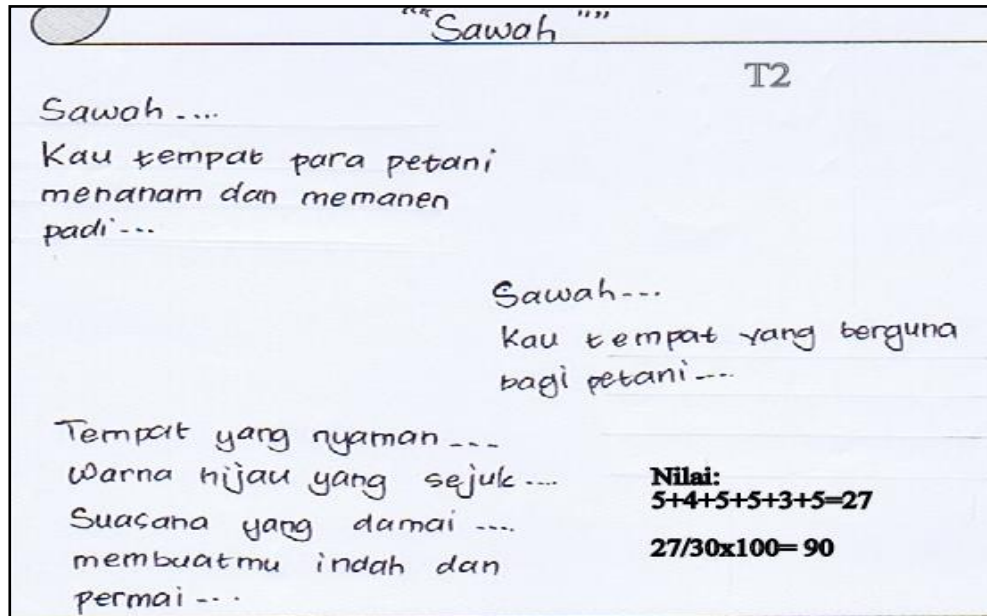 ""Sawah""
T2
Sawah....
Kau tempat para petani
menanam dan memanen
padi...
Sawah...
Kau tempat yang berguna
bagi petani....
Tempat yang nyaman....
Warna hijau yang sejuk....
Suasana yang damai....
membuatmu indah dan
permai...
Nilai:
5+4+5+5+3+5=27
27/30x100= 90